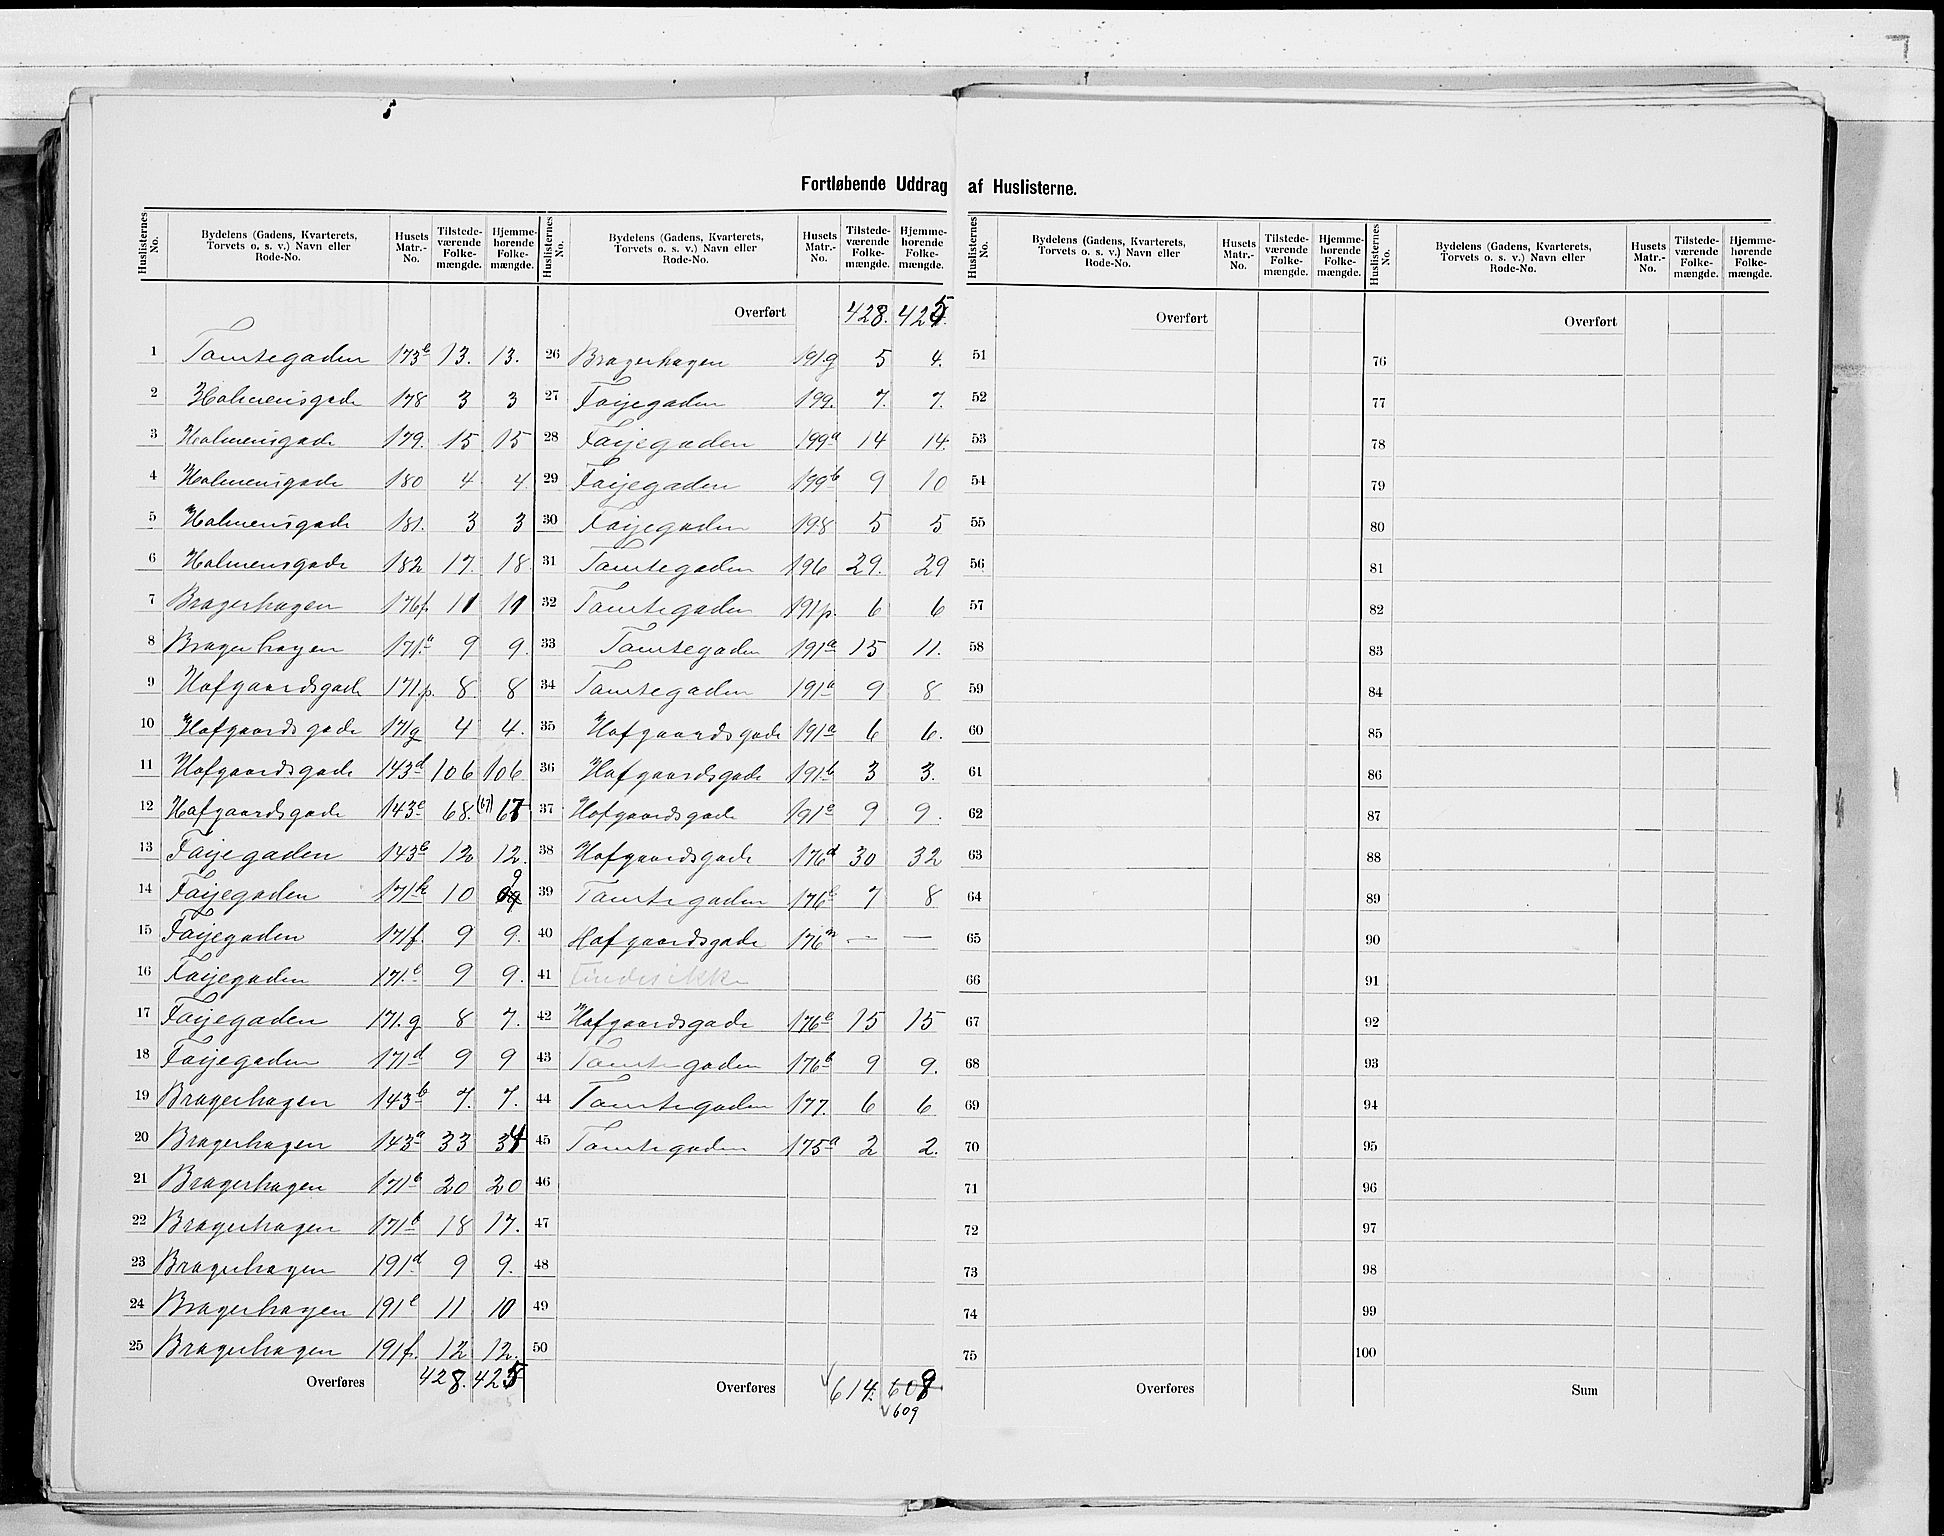 Fortløbende Uddrag af Huslisterne.
Huslisternes No. | Bydelens (Gadens, Kvarterets, Torvets o. s. v.) Navn eller Rode-No. | Husets Matr.-No. | Tilstede-værende Folke-mængde. | Hjemme-hørende Folke-mængde.
1 Tomtegaden 173b 13. 13.
2 Holmensgade 178 3 3
3 Holmensgade 179. 15 15
4 Holmensgade 180 4 4
5 Holmensgade 181. 3 3
6 Holmensgade 182 17. 18
7 Bragerhagen 176f. 11 11
8 Bragerhagen 171.a 9 9.
9 Hofgaardsgade 171p. 8 8
10 Hofgaardsgade 171g 4 4.
11 Hofgaardsgade 143d 106 106
12 Hofgaardsgade 143c 68. (67) 67
13 Faijegaden 143b 12 12.
14 Faijegaden 171k 10 9
15 Faijegaden 171f. 9 9.
16 Faijegaden 171.e 9 9.
17 Faijegaden 171.g 8 7.
18 Faijegaden 171d 9 9
19 Bragerhagen 143b 7. 7.
20 Bragerhagen 143a 33 34
21 Bragerhagen 171b 20 20
22 Bragerhagen 171b 18 17.
23 Bragerhagen 191d 9 9.
24 Bragerhagen 191e 11 10
25 Bragerhagen 191f. 12 12.
Overføres 428. 425
Huslisternes No. | Bydelens (Gadens, Kvarterets, Torvets o. s. v.) Navn eller Rode-No. | Husets Matr.-No. | Tilstede-værende Folke-mængde. | Hjemme-hørende Folke-mængde.
Overført 428. 425
26 Bragerhagen 191g 5 4.
27 Faijegaden 199. 7. 7.
28 Faijegaden 199a 14 14.
29 Faijegaden 199b 9 10
30 Faijegaden 198 5 5
31 Tomtegaden 196 29. 29
32 Tomtegaden 191p. 6 6
33 Tomtegaden 191a 15 11.
34 Tomtegaden 191a 9 8
35 Hofgaardsgade 191a 6 6.
36 Hofgaardsgade 191b 3 3.
37 Hofgaardsgade 191c 9 9.
38 Hofgaardsgade 176d 30 32
39 Tomtegaden 176e 7 8
40 Hofgaardsgade 176m — —
41 Findes ikke
42 Hofgaardsgade 176e 15 15
43 Tomtegaden 176b 9 9.
44 Tomtegaden 177. 6 6
45 Tomtegaden 175a 2 2.
46
47
48
49
50
Overføres 614. 608
609
Huslisternes No. | Bydelens (Gadens, Kvarterets, Torvets o. s. v.) Navn eller Rode-No. | Husets Matr.-No. | Tilstede-værende Folke-mængde. | Hjemme-hørende Folke-mængde.
Overført
51
52
53
54
55
56
57
58
59
60
61
62
63
64
65
66
67
68
69
70
71
72
73
74
75
Overføres
Huslisternes No. | Bydelens (Gadens, Kvarterets, Torvets o. s. v.) Navn eller Rode-No. | Husets Matr.-No. | Tilstede-værende Folke-mængde. | Hjemme-hørende Folke-mængde.
Overført
76
77
78
79
80
81
82
83
84
85
86
87
88
89
90
91
92
93
94
95
96
97
98
99
100
Sum